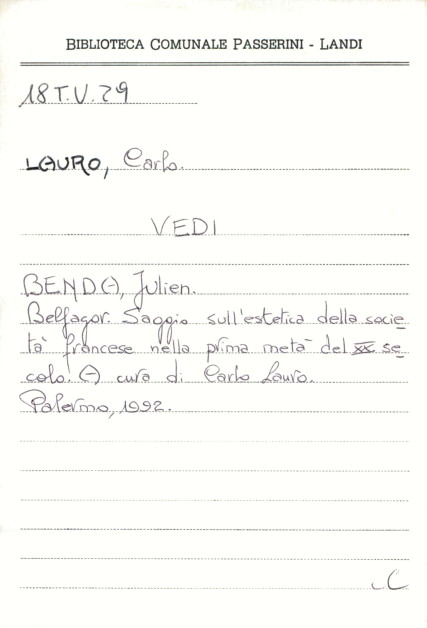 BIBLIOTECA COMUNALE PASSERINI - LANDI
18 T.V. 29
LAURO, Carlo.
VEDI
BENDA, Julien.
Belfagor. Saggio sull'estetica della socie
tà francese nella prima metà del XX se
colo. A cura di Carlo Lauro.
Palermo, 1992.